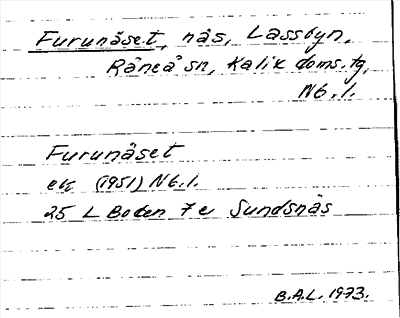 Furunäset, näs, Lassbyn,
Råneå sn, Kalix doms.tg,
Nb.l.
Furunäset
ek (1951) Nb.l.
25 L Boden 7e Sundsnäs
B.A.L. 1973.